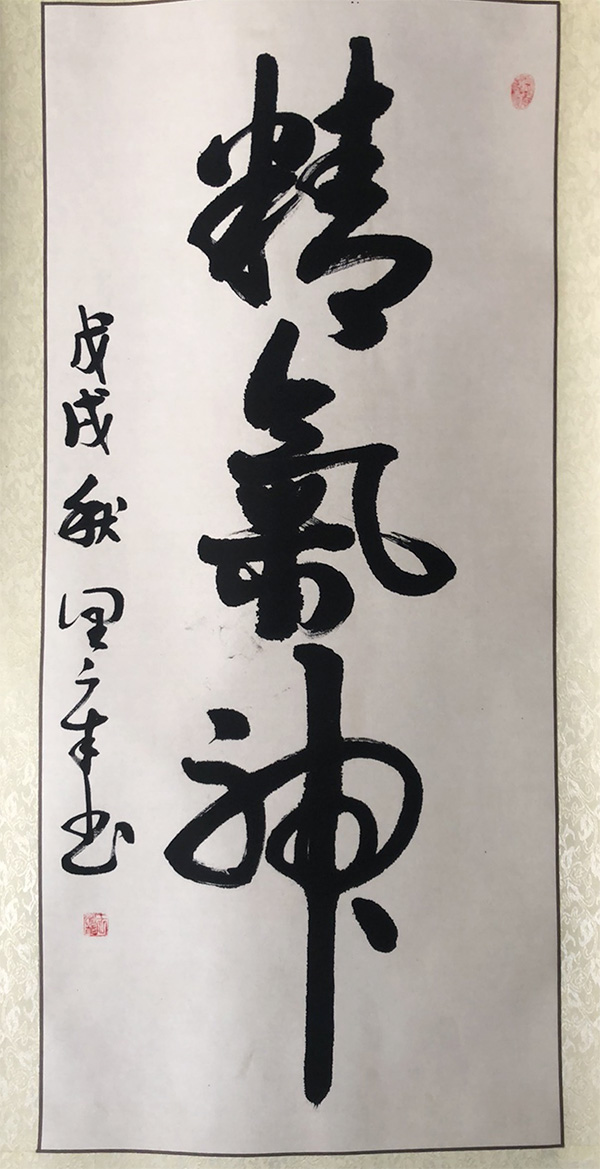 精氣神
戊戌秋 里 書